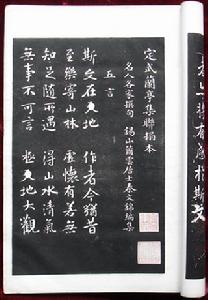 定武蘭亭集聯搨本
名人各家撰句 錫山蘭雲居士秦文錦編集
五言
斯文在天地 作者今猶昔
至樂寄山林 虛懷有若無
知足隨所遇 得山水清氣
無事不可言 極天地大觀
有感於斯文